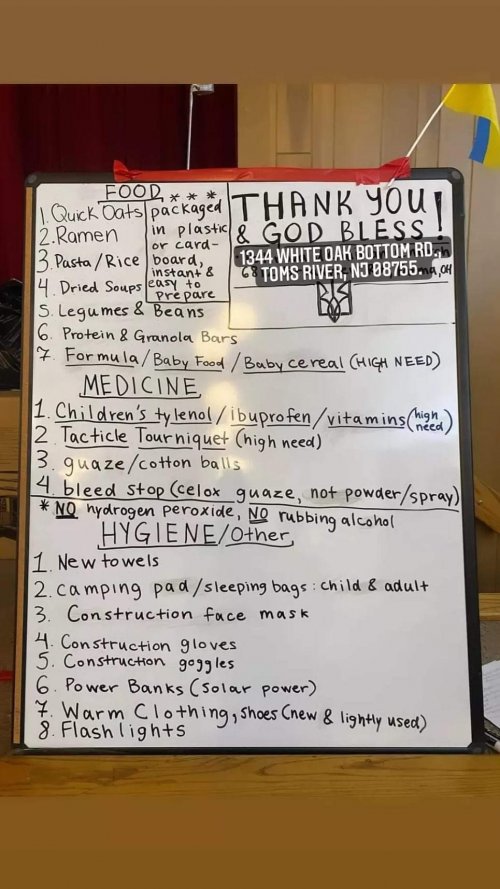 FOOD
1. Quick Oats
2. Ramen
3. Pasta/Rice
4. Dried Soups
5. Legumes & Beans
6. Protein & Granola Bars
7. Formula/Baby Food/Baby cereal (HIGH NEED)
* * *
packaged
in plastic
or card-
board,
instant &
easy to
prepare
THANK YOU!
& GOD BLESS!
1344 WHITE OAK BOTTOM RD.,
TOMS RIVER, NJ 08755.
OH
MEDICINE
1. Children's tylenol/ibuprofen/vitamins (high need)
2 Tacticle Tourniquet (high need)
3. guaze/cotton balls
4. bleed stop (celox guaze, not powder/spray)
* NO hydrogen peroxide, NO rubbing alcohol
HYGIENE/Other
1. New towels
2. camping pad/sleeping bags: child & adult
3. Construction face mask
4. Construction gloves
5. Construction goggles
6. Power Banks (solar power)
7. Warm Clothing, shoes (new & lightly used)
8. Flashlights